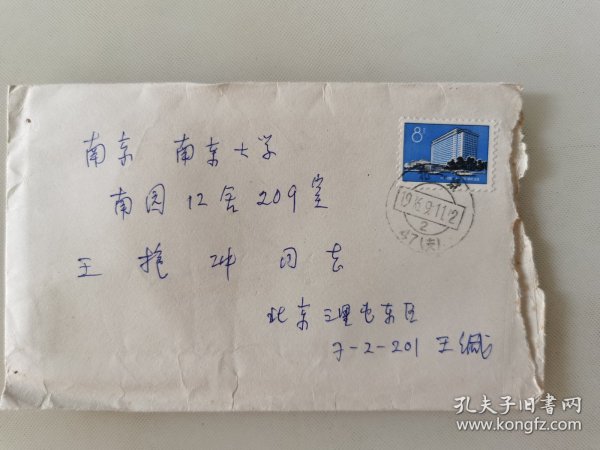 南京 南京大学
南园12舍209室
王抱冲同志
北京三里屯东区
7-2-201 王缄
8分
北京
2
孔夫子旧书网
www.kongfz.com